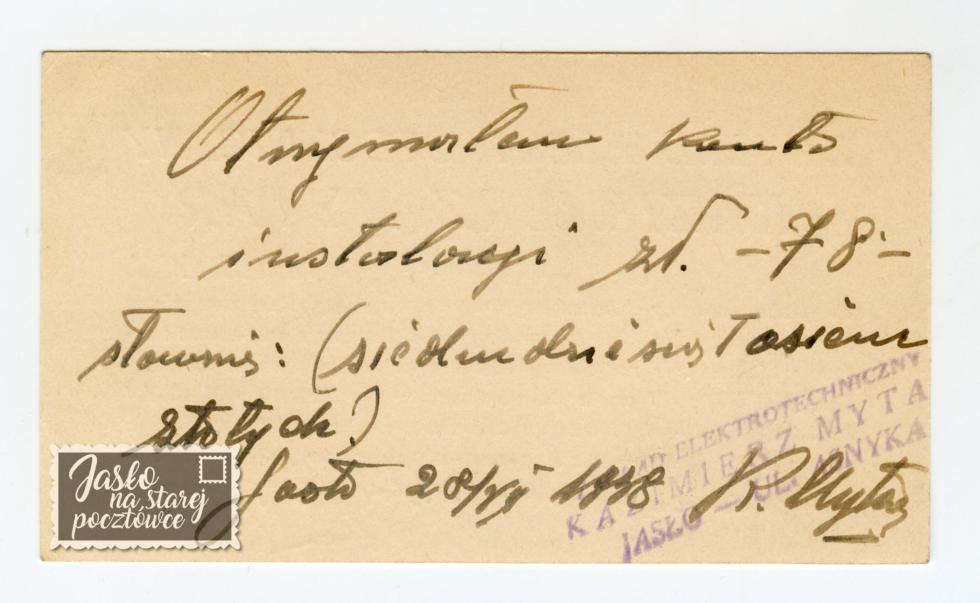 Otrzymałem konto
instalacji zł. –78·–
słownie: (siedmdziesiąt osiem
złotych)
Jasło 28/VI 19 8 K. Myta
ZAKŁAD ELEKTROTECHNICZNY
KAZIMIERZ MYTA
JASŁO — UL.
Jasło
na starej
pocztówce